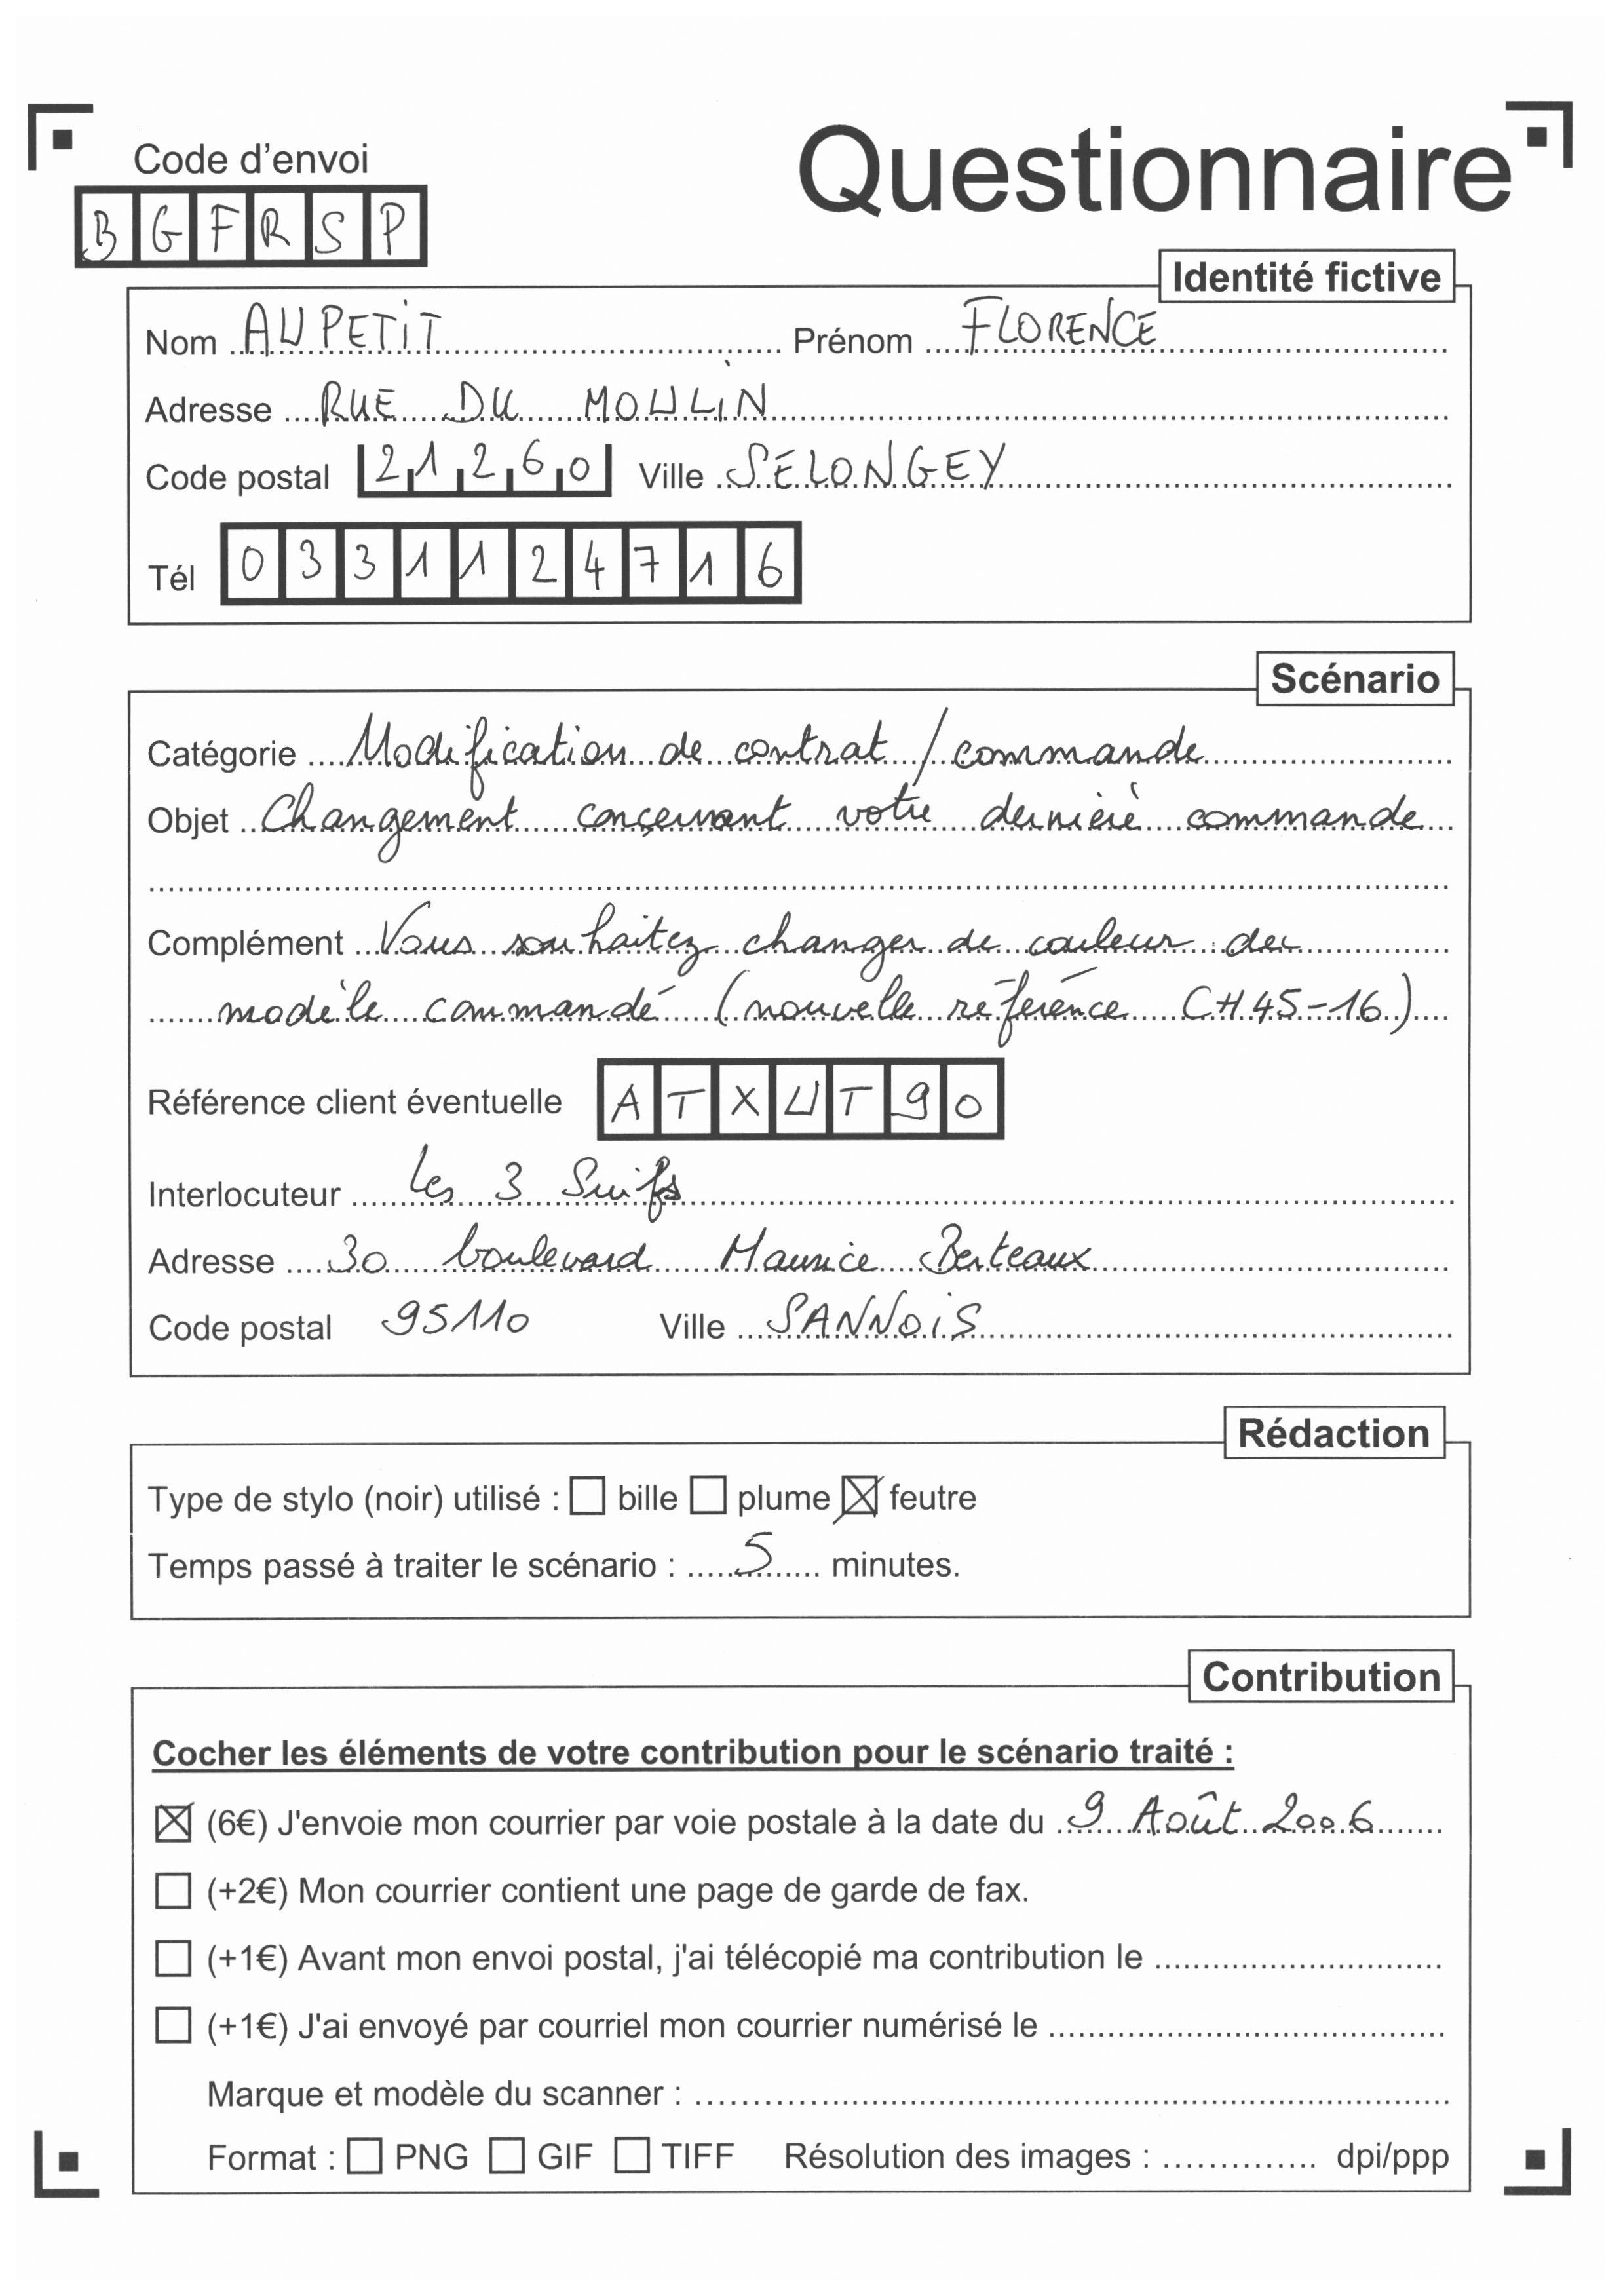 Code d'envoi
Questionnaire
BGFRSP
Identité fictive
Nom AUPETIT Prénom FLORENCE
Adresse RUE DU MOULIN
Code postal 21260 Ville SELONGEY
Tél 0331124716
Scénario
Catégorie Modification de contrat / commande
Objet Changement concernant votre dernière commande
Complément Vous souhaitez changer de couleur du
modèle commandé (nouvelle référence CH45-16)
Référence client éventuelle ATXUT90
Interlocuteur Les 3 Suifs
Adresse 30 boulevard Maurice Berteaux
Code postal 95110 Ville SANNOIS
Rédaction
Type de stylo (noir) utilisé : bille plume feutre
Temps passé à traiter le scénario : 5 minutes.
Contribution
Cocher les éléments de votre contribution pour le scénario traité :
(6€) J'envoie mon courrier par voie postale à la date du 9 Août 2006
(+2€) Mon courrier contient une page de garde de fax.
(+1€) Avant mon envoi postal, j'ai télécopié ma contribution le
(+1€) J'ai envoyé par courriel mon courrier numérisé le
Marque et modèle du scanner :
Format : PNG GIF TIFF Résolution des images : dpi/ppp